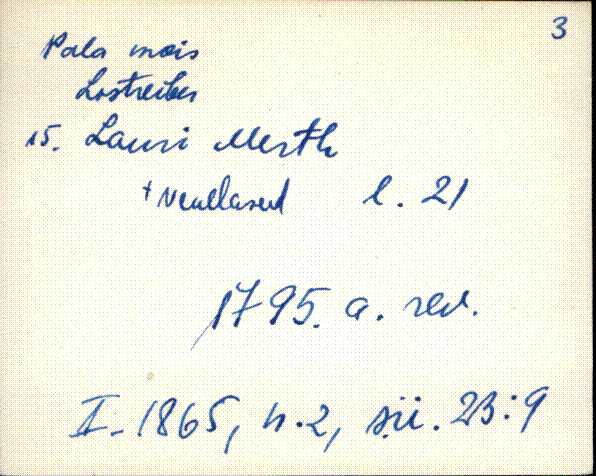 3
Pala mois
Lostreiber
15. Lauri Merth
l. 21
1795. a. rev.
I-1865, n.2, sü. 23:9